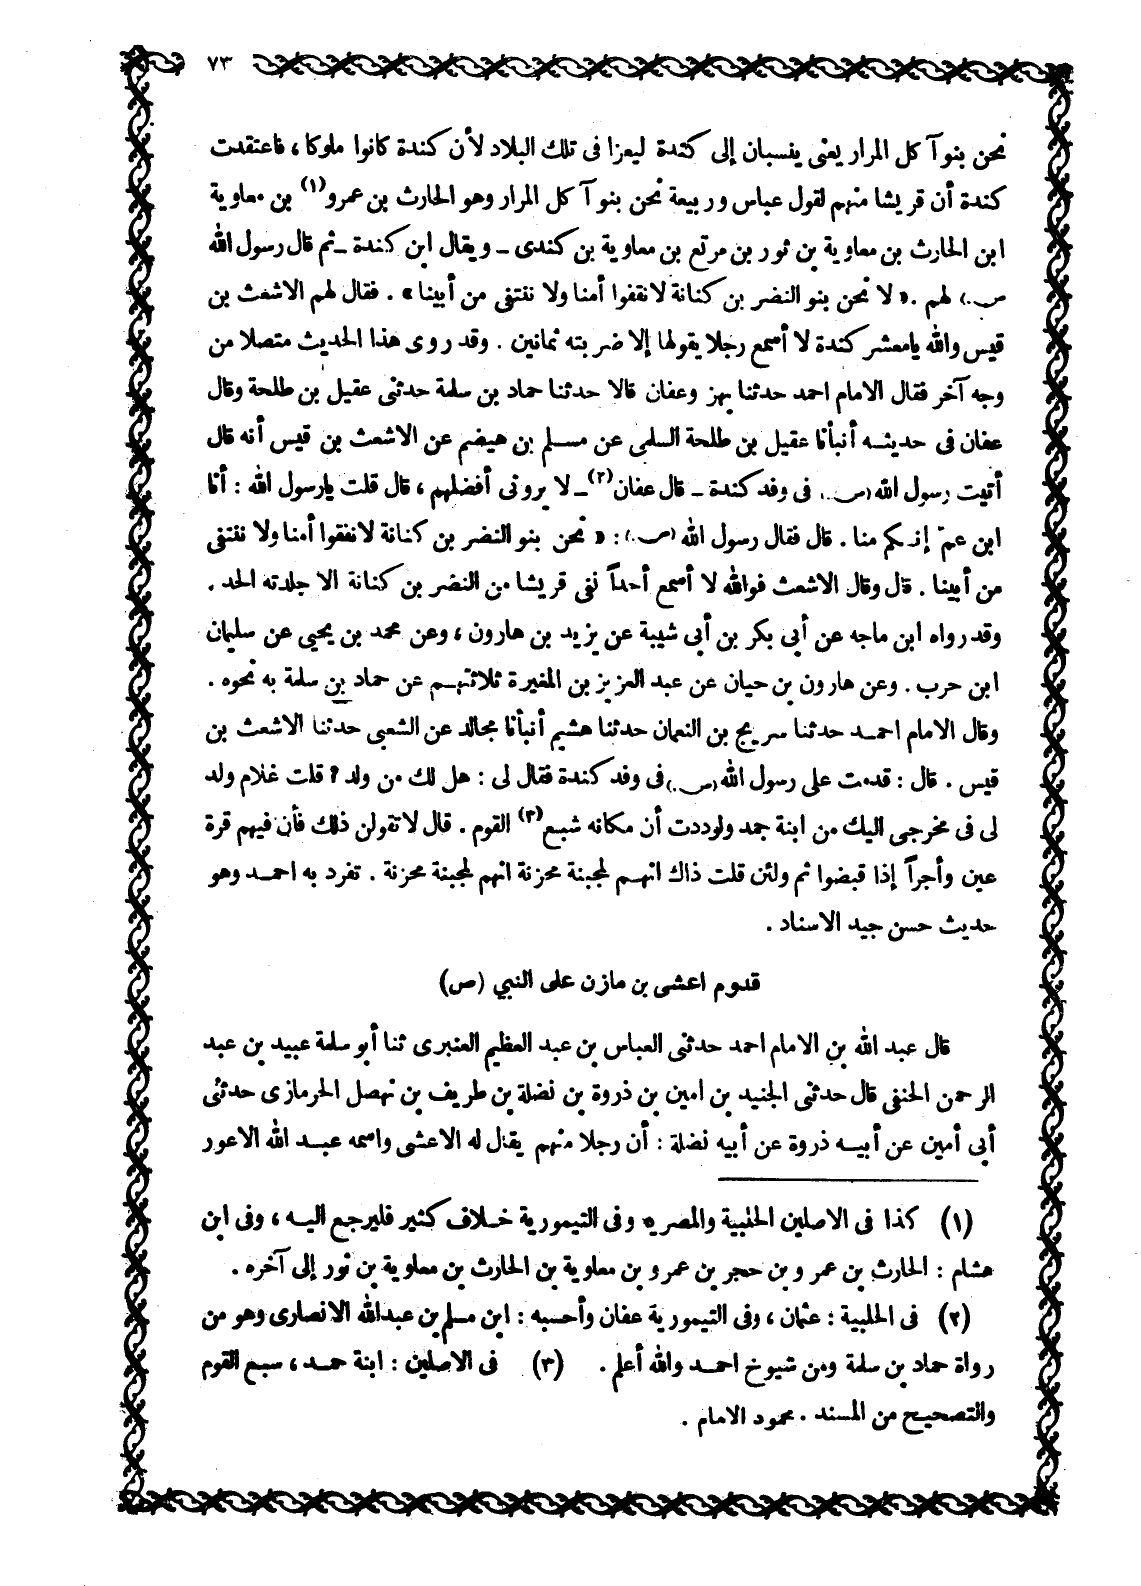 ٧٣
نحن بنو آكل المرار يعنى ينسبان إلى كندة ليعزا فى تلك البلاد لأن كندة كانوا ملوكا ، فاعتقدت
كندة أن قريشا منهم لقول عباس وربيعة نحن بنو آكل المرار وهو الحارث بن عمرو(١) بن معاوية
ابن الحارث بن معاوية بن ثور بن مرتع بن معاوية بن كندى ـ ويقال ابن كندة ـ ثم قال رسول الله
(ص) لهم . « لا نحن بنو النضر بن كنانة لا نقفوا أمنا ولا ننتفى من أبينا » . فقال لهم الاشعث بن
قيس والله يا معشر كندة لا أسمع رجلا يقولها إلا ضربته ثمانين . وقد روى هذا الحديث متصلا من
وجه آخر فقال الامام احمد حدثنا بهز وعفان قالا حدثنا حماد بن سلمة حدثنى عقيل بن طلحة وقال
عفان فى حديثه أنبأنا عقيل بن طلحة السلمى عن مسلم بن هيضم عن الاشعث بن قيس أنه قال
أتيت رسول الله (ص) فى وفد كندة ـ قال عفان(٢) ـ لا يرونى أفضلهم ، قال قلت يارسول الله : أنا
ابن عم إنكم منا . قال فقال رسول الله (ص) : « نحن بنو النضر بن كنانة لا نقفوا أمنا ولا ننتفى
من أبينا . قال وقال الاشعث فوالله لا أسمع أحداً نفى قريشا من النضر بن كنانة الا جلدته الحد .
وقد رواه ابن ماجه عن أبي بكر بن أبي شيبة عن يزيد بن هارون ، وعن محمد بن يحيى عن سليمان
ابن حرب . وعن هارون بن حيان عن عبد العزيز بن المغيرة ثلاثتهم عن حماد بن سلمة به نحوه .
وقال الامام احمد حدثنا سريج بن النعمان حدثنا هشيم أنبأنا مجالد عن الشعبى حدثنا الاشعث بن
قيس . قال : قدمت على رسول الله (ص) فى وفد كندة فقال لى : هل لك من ولد ؟ قلت غلام ولد
لى فى مخرجى اليك من ابنة جمد ولوددت أن مكانه شبع(٣) القوم . قال لا تقولن ذلك فأن فيهم قرة
عين وأجراً إذا قبضوا ثم ولئن قلت ذاك انهم لمجبنة محزنة انهم لمجبنة محزنة . تفرد به احمد وهو
حديث حسن جيد الاسناد .
قدوم اعشى بن مازن على النبي (ص)
قال عبد الله بن الامام احمد حدثنى العباس بن عبد العظيم العنبرى ثنا أبو سلمة عبيد بن عبد
الرحمن الحنفى قال حدثنى الجنيد بن امين بن ذروة بن نضلة بن طريف بن نهصل الحرمازى حدثنى
أبى أمين عن أبيه ذروة عن أبيه نضلة : أن رجلا منهم يقال له الاعشى واسمه عبد الله الاعور
(١) كذا فى الاصلين الحلبية والمصريه وفى التيمورية خلاف كثير فليرجع اليه ، وفى ابن
هشام : الحارث بن عمرو بن حجر بن عمرو بن معاوية بن الحارث بن معاوية بن ثور إلى آخره .
(٢) فى الحلبية : عثمان ، وفى التيمورية عفان وأحسبه : ابن مسلم بن عبدالله الانصارى وهو من
رواة حماد بن سلمة ومن شيوخ احمد والله أعلم . (٣) فى الاصلين : ابنة حمد ، سبع القوم
والتصحيح من المسند . محمود الامام .